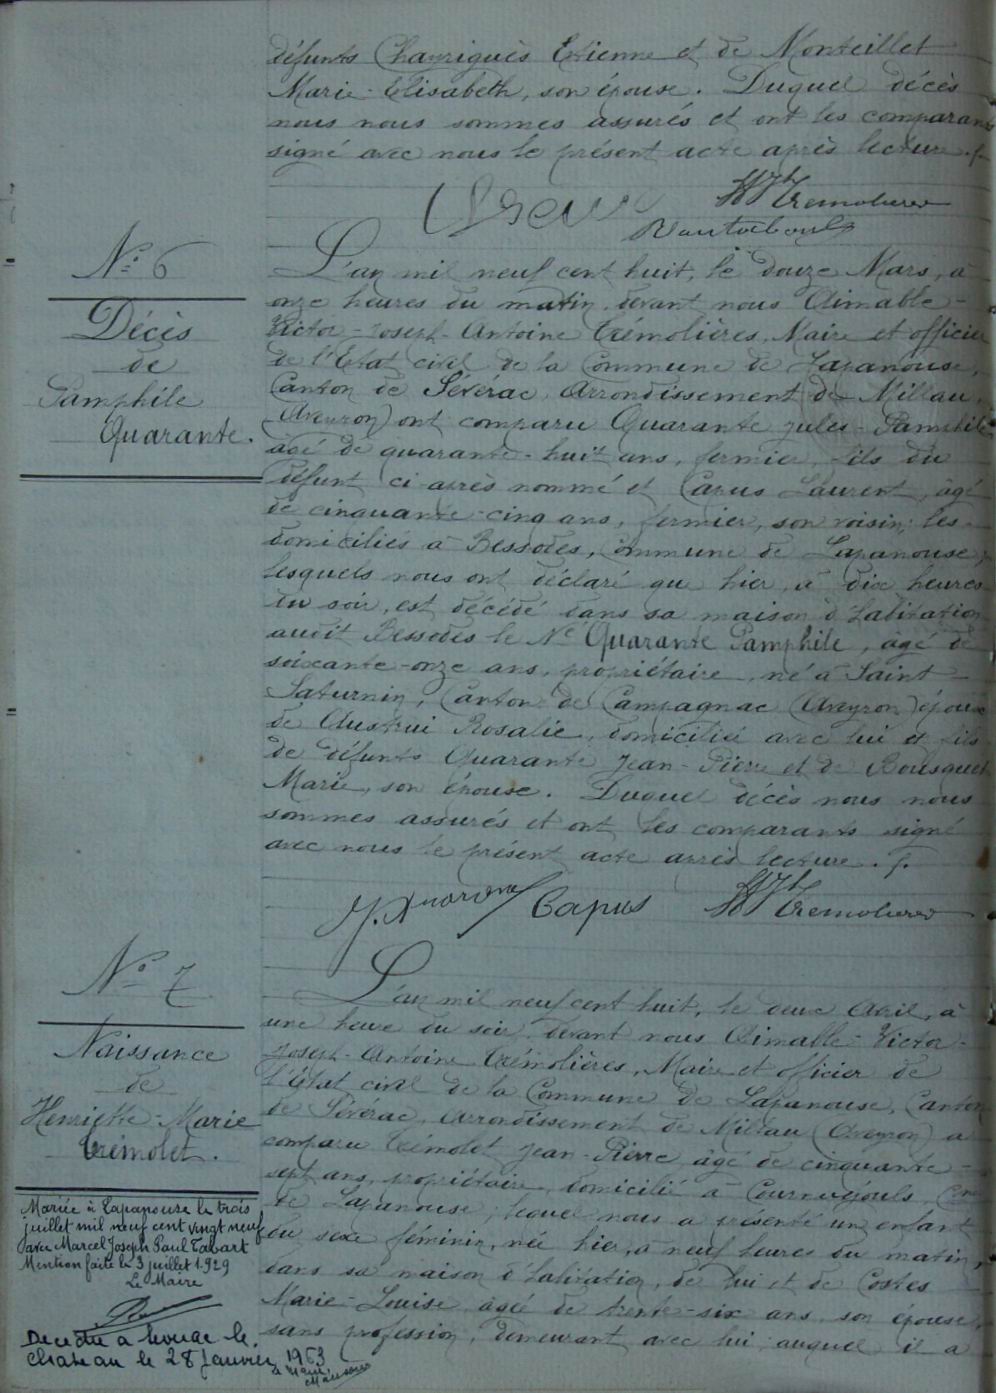 défunts Chauriguès Etienne et de Monteillet
Marie-Elisabeth, son épouse. Duquel décès
nous nous sommes assurés et ont les comparants
signé avec nous le présent acte après lecture.
Trémolières
N° 6
Décès
de
Pamphile
Quarante.
L'an mil neuf cent huit, le douze Mars, à
onze heures du matin, devant nous Aimable-
Victor-Joseph-Antoine Trémolières, Maire et officier
de l'Etat civil de la Commune de Lapanouse,
Canton de Sévérac, Arrondissement de Millau,
(Aveyron) ont comparu Quarante Jules-Pamphile
âgé de quarante-huit ans, fermier, fils du
défunt ci-après nommé et Capus Laurent, âgé
de cinquante-cinq ans, fermier, son voisin; les
domiciliés à Bessodes, Commune de Lapanouse,
lesquels nous ont déclaré qu'hier, à dix heures
du soir, est décédé dans sa maison d'habitation
audit Bessodes le Né Quarante Pamphile, âgé de
soixante-onze ans, propriétaire, né à Saint
Saturnin, Canton de Campagnac (Aveyron) époux
de Austrui Rosalie, domiciliée avec lui et fils
de défunts Quarante Jean-Pierre et de Bousquet
Marie, son épouse. Duquel décès nous nous
sommes assurés et ont les comparants signé
avec nous le présent acte après lecture.
J. Quarante Capus Trémolières
N° 7
Naissance
de
Henriette-Marie
Trémolet.
L'an mil neuf cent huit, le deux Avril, à
une heure du soir, devant nous Aimable-Victor-
Joseph-Antoine Trémolières, Maire et officier de
l'état civil de la Commune de Lapanouse, Canton
de Sévérac, arrondissement de Millau (Aveyron) a
comparu Trémolet Jean-Pierre âgé de cinquante-
sept ans, propriétaire, domicilié à Cournuéjouls, Cne
de Lapanouse; lequel nous a présenté un enfant
du sexe féminin, née hier, à neuf heures du matin,
dans sa maison d'habitation, de lui et de Costes
Marie-Louise âgée de trente-six ans, son épouse,
sans profession, demeurant avec lui auquel il a
Mariée à Lapanouse le trois
juillet mil neuf cent vingt neuf
avec Marcel Joseph Paul Tabart
Mention faite le 3 juillet 1929
Le Maire
Décédée à
Chateau le 28 Janvier 1963